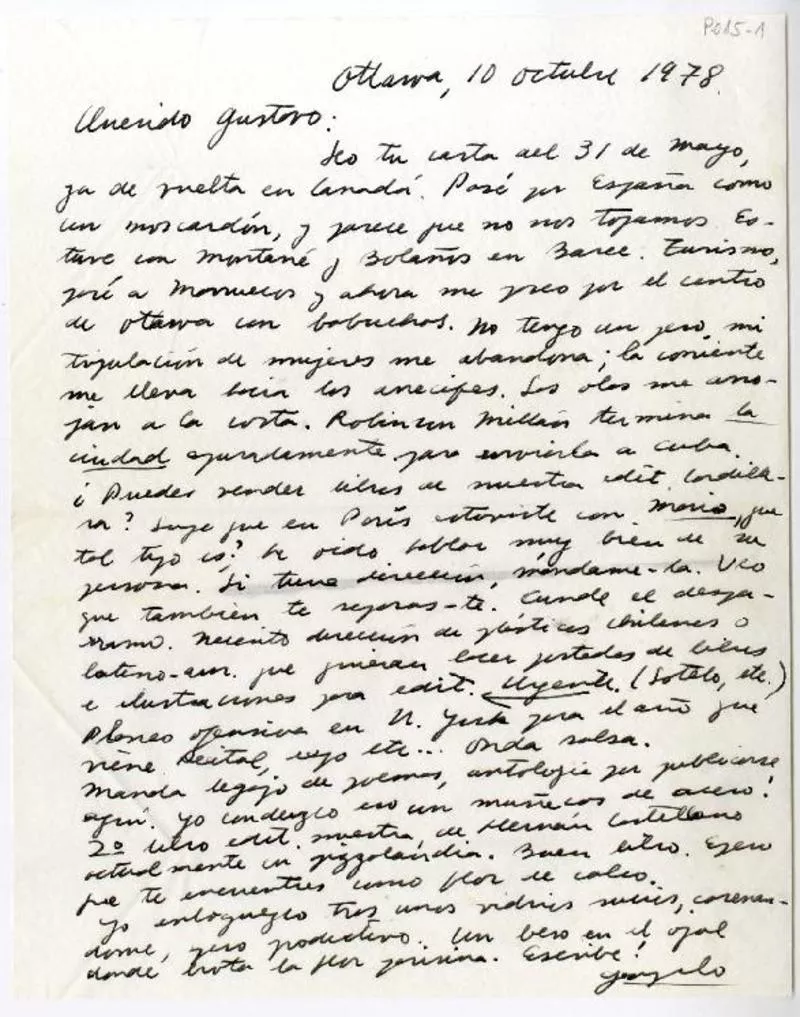 P015-1
Ottawa, 10 octubre 1978.
Querido Gustavo:
Leo tu carta del 31 de mayo,
ya de vuelta en Canadá. Pasé por España como
un moscardón, y parece que no nos topamos. Es-
tuve con Montané y Bolaños en Barce. Turismo,
pasé a Marruecos y ahora me paseo por el centro
de Otawa con babuchas. No tengo un peso, mi
tripulación de mujeres me abandona; la corriente
me lleva hacia los arrecifes. Las olas me arro-
jan a la costa. Robinson Millán termina la
ciudad apuradamente para enviarla a Cuba.
¿Puedes vender libros de nuestra edit. Cordille-
ra? Supe que en París estuviste con Mario, que
tal tipo es? He oido hablar muy bien de su
persona. Si tiene dirección, mándame-la. Veo
que también te separas-te. Cunde el despa-
rramo. Necesito dirección de plásticos chilenos o
latino-am. que quieran hacer portadas de libros
e ilustraciones para edit. Urgente. (Sotelo, etc.)
Planeo ofensiva en N. York para el año que
viene. Recital, etc... Onda salsa.
Manda legajo de poemas, antología por publicarse
aquí. Yo conduzco eso un muñecos de acero!
2º libro edit. nuestra, de Hernán Castellano
actualmente en pizzolandia. Buen libro. Espero
que te encuentres como flor de
Yo enloquezco tras unos vidrios sucios,
dome, pero productivo. Un beso en el ojal
donde brota la flor parisina. Escribe!
Gonzalo